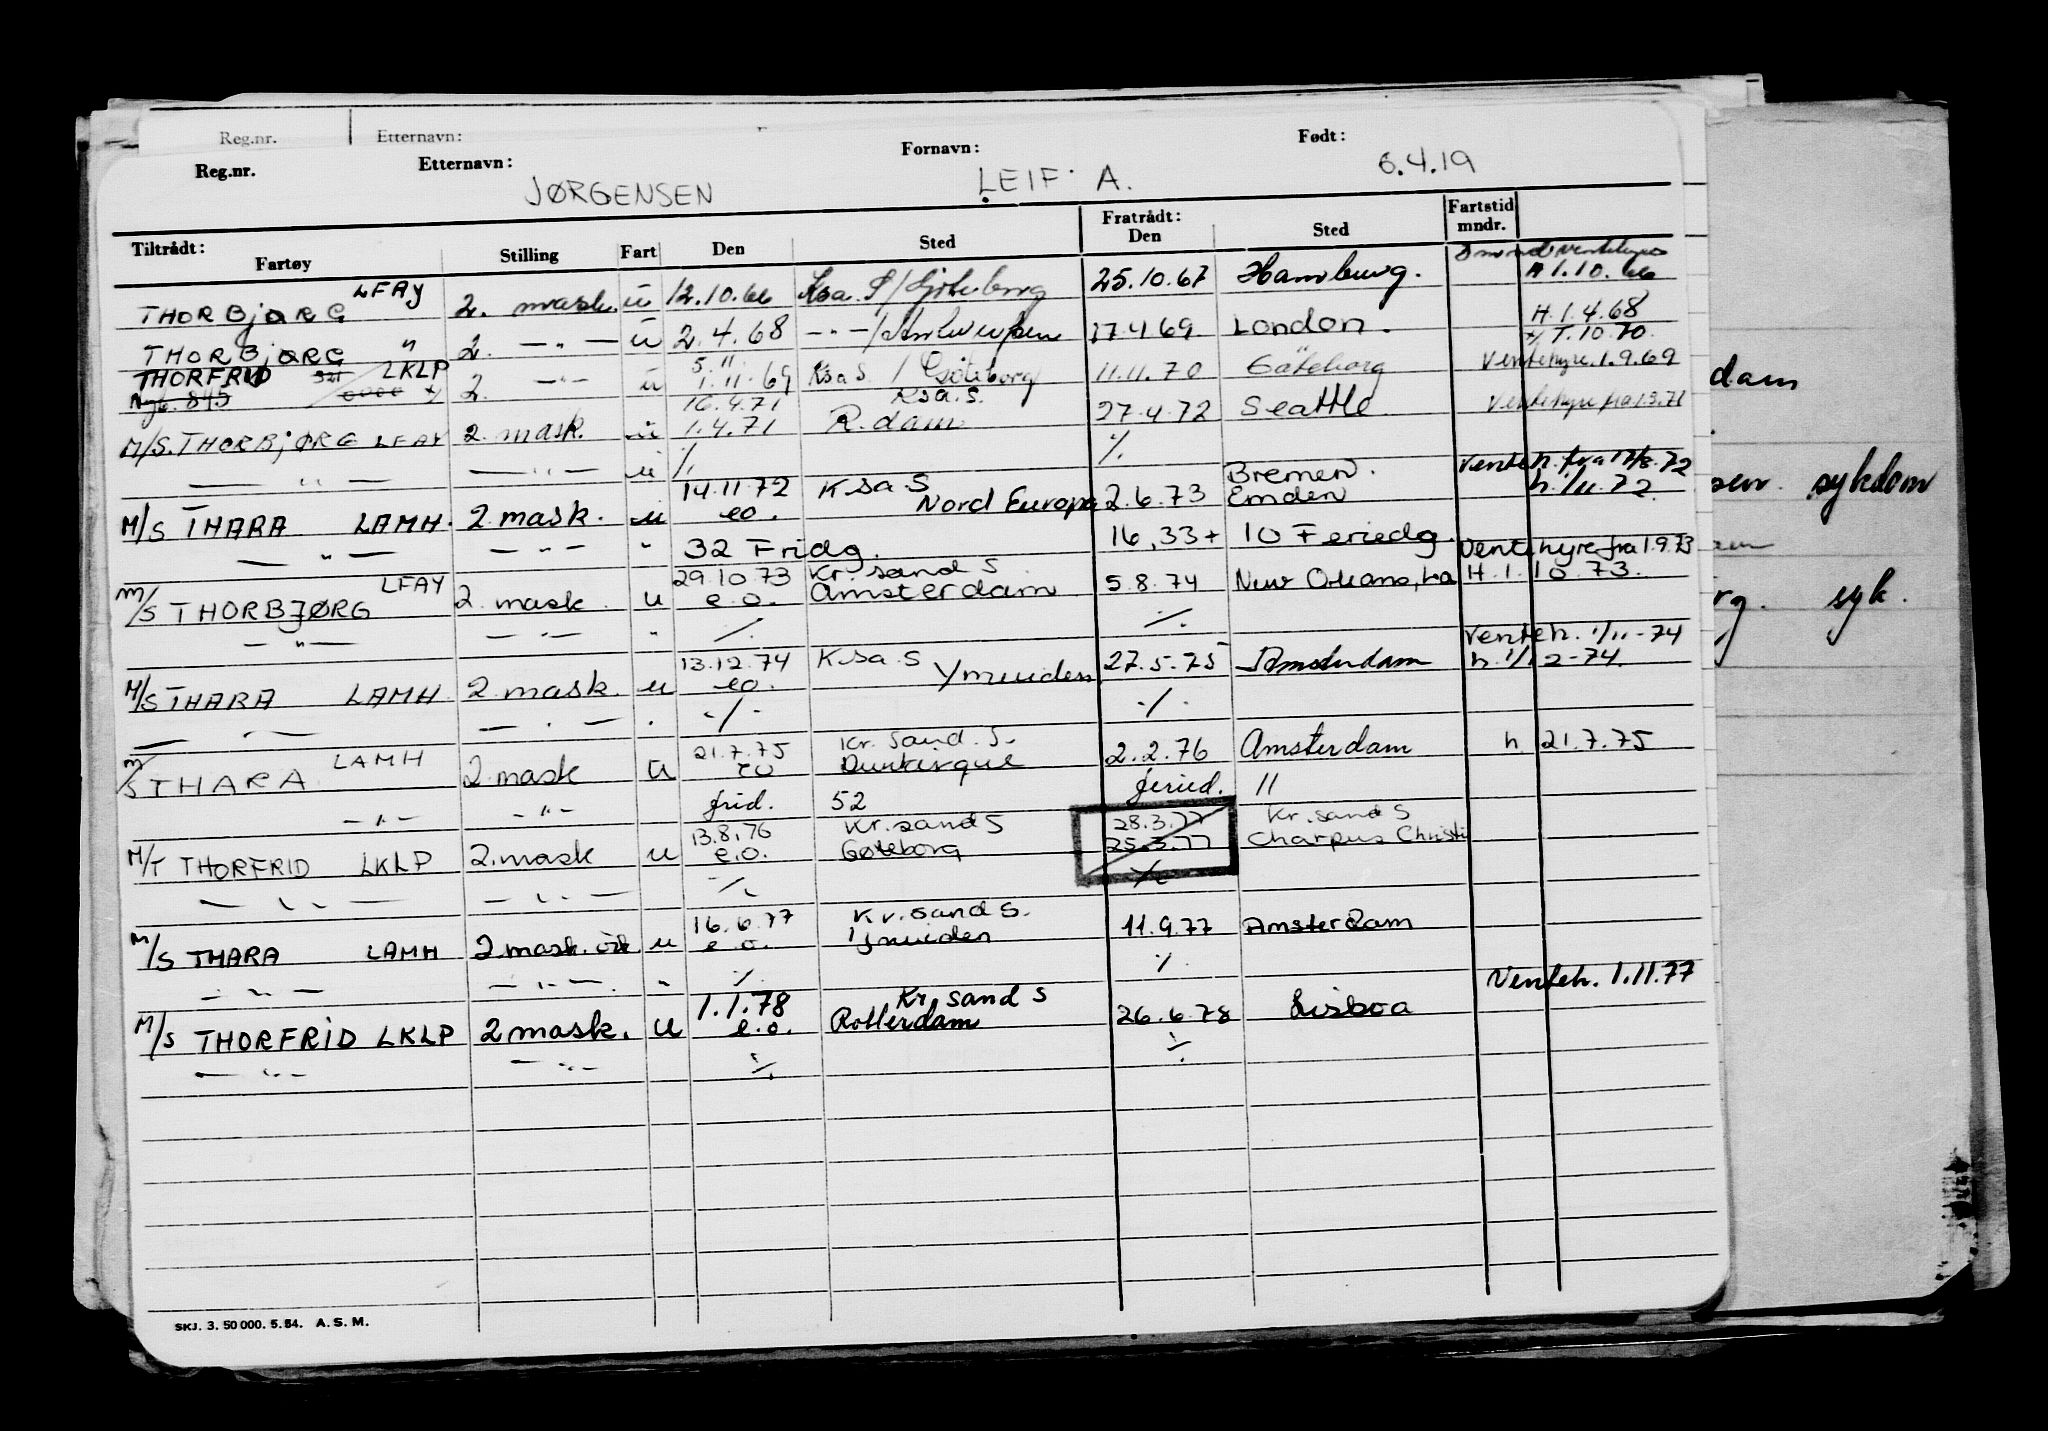 Reg.nr. Etternavn:
Reg.nr. Etternavn: Fornavn: Født:
JØRGENSEN LEIF A. 6.4.19
Tiltrådt: Fratrådt: Fartstid
Fartøy Stilling Fart Den Sted Den Sted mndr.
ventehyre
THORBJØRG LFAY 2. mask. u 12.10.66 Ksa. S/Gøteborg 25.10.67 Hamburg. H 1.10.66
THORBJØRG " 2. —"— u 2.4.68 —"—/Antwerpen 17.4.69 London. H. 1.4.68
5.11 x/ T.10.70.
THORFRID 321 LKLP 2. —"— u 1.11.69 Ksa S / Göteborg 11.11.70 Göteborg Ventehyre. 1.9.69
Nyb. 845 0000 x/
16.4.71 Ksa. S.
M/S. THORBJØRG LFAY 2. mask. u 1.4.71 R.dam 27.4.72 Seattle Ventehyre fra 1.3.71
— " — — " — u ⁒ ⁒
14.11.72 K.sa.S Bremen. Venteh. fra 17/8.72
M/S THARA LAMH. 2 mask. u eo. Nord Europa 2.6.73 Emden h. 1/11.72
— " — — " — " 32 Fridg. 16,33+ 10 Feriedg. Ventehyre fra 1.9.73
29.10.73 Kr.sand S
M/S THORBJØRG LFAY 2. mask. u e.o. Amsterdam 5.8.74 New Orleans, La H. 1.10.73.
— " — — " — " ⁒ ⁒
13.12.74 K.sa.S Venteh. 1/11-74
M/S THARA LAMH 2 mask. u eo. Ymuiden 27.5.75 Amsterdam h. 1/12-74.
— " — — " — " -/- -/-
21.7.75 Kr. Sand. S.
M/S THARA LAMH 2 mask u eo Dunkirque 2.2.76 Amsterdam h. 21.7.75
— " — — " — frid. 52 feried. 11
13.8.76 Kr.sand S 28.3.77 Kr.sand S
M/T THORFRID LKLP 2.mask u e.o. Gøteborg 25.3.77 Charpus Christi
— " — — " — ⁒ ⁒
16.6.77 Kr.sand S.
M/S THARA LAMH 2 mask. u e.o. Ijmuiden 11.9.77 Amsterdam
— " — — " — " ⁒ ⁒
1.1.78 Kr sand S Venteh. 1.11.77
M/S THORFRID LKLP 2 mask. u e.o. Rotterdam 26.6.78 Lisboa
— " — — " — ⁒ ⁒
SKJ. 3. 50 000. 5. 64. A. S. M.
dam
sen. sykdom
am
rg. syk.